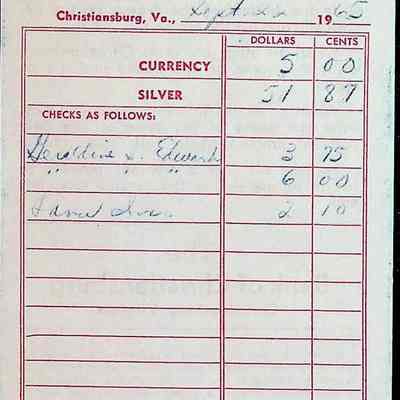 Christiansburg, Va., Sept. 22 1965
DOLLARS CENTS
CURRENCY 5 00
SILVER 51 87
CHECKS AS FOLLOWS:
Geraldine S. Edwards 3 75
" " " 6 00
2 10